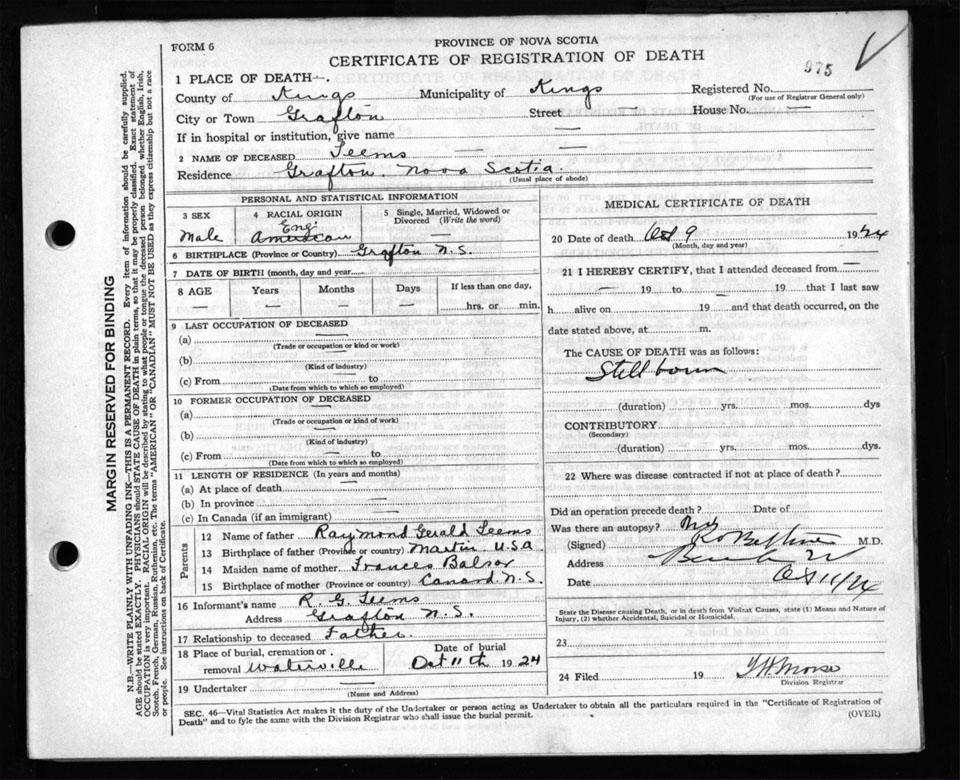 FORM 6
PROVINCE OF NOVA SCOTIA
CERTIFICATE OF REGISTRATION OF DEATH
975
1 PLACE OF DEATH—.
County of Kings Municipality of Kings Registered No.
(For use of Registrar General only)
City or Town Grafton Street — House No. —
If in hospital or institution, give name —
2 NAME OF DECEASED Teems — —
Residence Grafton. Nova Scotia.
(Usual place of abode)
PERSONAL AND STATISTICAL INFORMATION
3 SEX 4 RACIAL ORIGIN 5 Single, Married, Widowed or Divorced (Write the word)
Male Eng. American —
6 BIRTHPLACE (Province or Country) Grafton N.S.
7 DATE OF BIRTH (month, day and year
8 AGE Years Months Days If less than one day,
— — — — hrs. or min.
9 LAST OCCUPATION OF DECEASED
(a) —
(Trade or occupation or kind or work)
(b) —
(Kind of industry)
(c) From — to
(Date from which to which so employed)
10 FORMER OCCUPATION OF DECEASED
(a) —
(Trade or occupation or kind of work)
(b) —
(Kind of industry)
(c) From — to
(Date from which to which so employed)
11 LENGTH OF RESIDENCE (In years and months)
(a) At place of death —
(b) In province —
(c) In Canada (if an immigrant) —
Parents
12 Name of father Raymond Gerald Teems
13 Birthplace of father (Province or country) Martin U.S.A
14 Maiden name of mother Frances Balsor
15 Birthplace of mother (Province or country) Canard N.S.
16 Informant's name R. G. Teems
Address Grafton N.S.
17 Relationship to deceased Father.
18 Place of burial, cremation or removal Waterville Date of burial Oct 11th 1924
19 Undertaker —
(Name and Address)
MEDICAL CERTIFICATE OF DEATH
20 Date of death Oct 9 1924
(Month, day and year)
21 I HEREBY CERTIFY, that I attended deceased from —
— 19 to — 19 that I last saw
h alive on 19 and that death occurred, on the
date stated above, at m.
The CAUSE OF DEATH was as follows:
Still born
(duration) yrs. mos. dys
CONTRIBUTORY
(Secondary)
(duration) yrs. mos. dys.
22 Where was disease contracted if not at place of death?
Did an operation precede death? Date of
Was there an autopsy?
(Signed) M.D.
Address
Date Oct 11/24
State the Disease causing Death, or in death from Violnat Causes, state (1) Means and Nature of
Injury, (2) whether Accidental, Suicidal or Homicidal.
23
24 Filed 19
Division Registrar
SEC. 46—Vital Statistics Act makes it the duty of the Undertaker or person acting as Undertaker to obtain all the particulars required in the "Certificate of Registration of
Death" and to fyle the same with the Division Registrar who shall issue the burial permit.
(OVER)
MARGIN RESERVED FOR BINDING
N.B.—WRITE PLAINLY WITH UNFADING INK—THIS IS A PERMANENT RECORD. Every item of information should be carefully supplied.
AGE should be stated EXACTLY. PHYSICIANS should STATE CAUSE OF DEATH in plain terms, so that it may be properly classified. Exact statement of
OCCUPATION is very important. RACIAL ORIGIN will be described by stating to what people or tongue the deceased person belonged whether English, Irish,
Scotch, French, German, Russian, Ruthenian, etc. The terms "AMERICAN" OR "CANADIAN" MUST NOT BE USED as they express citizenship but not a race
or people. See instructions on back of Certificate.